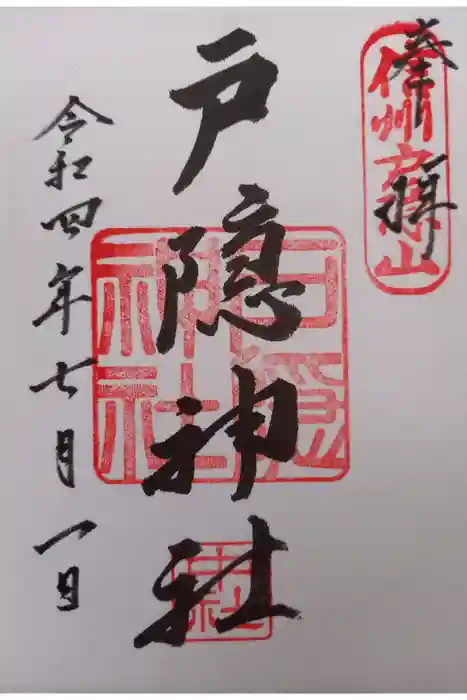 奉拝
信州戸隠山
戸隠神社
戸隠神社
中社
令和四年七月一日